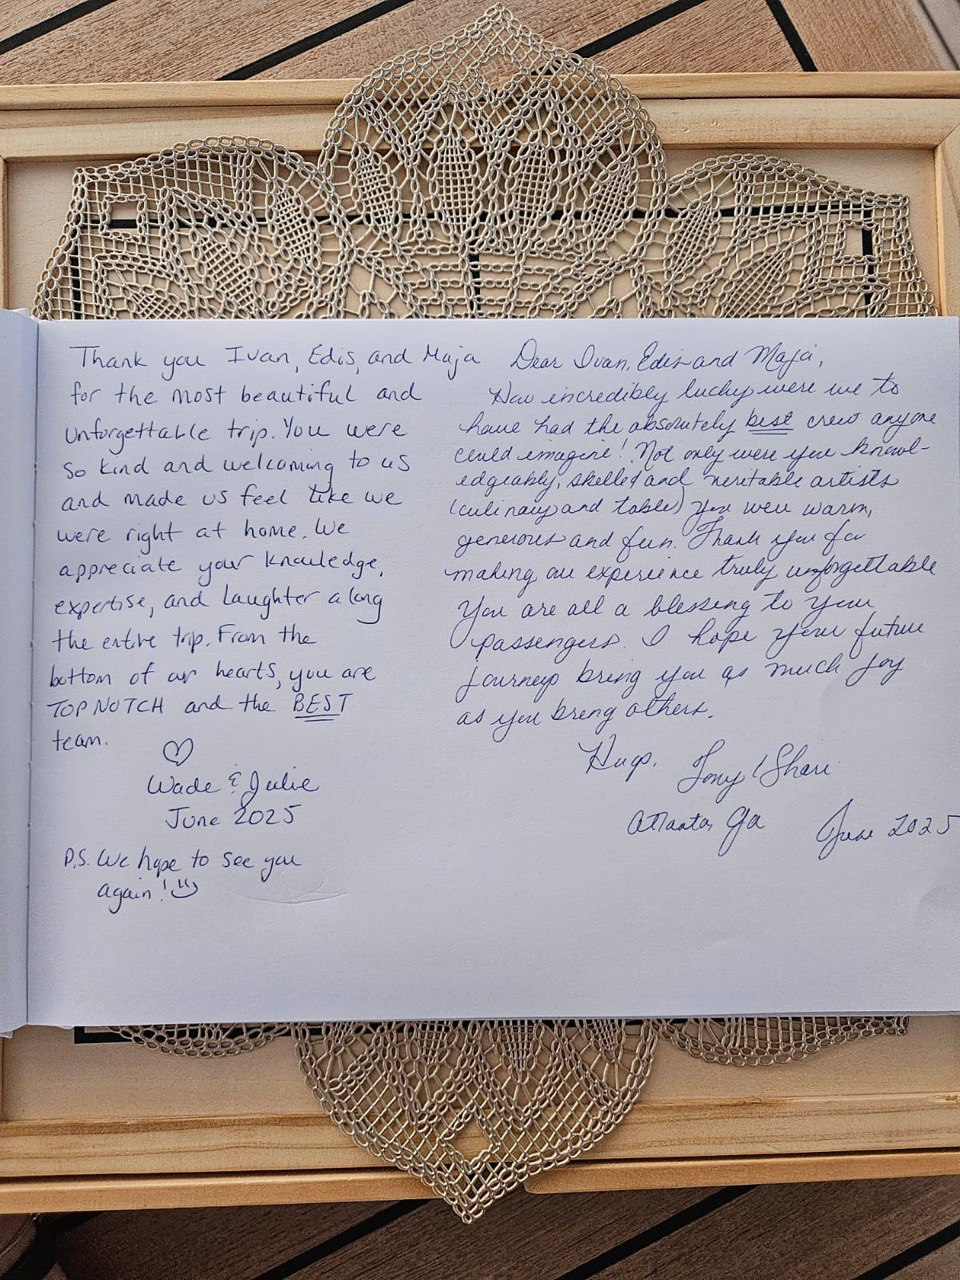 Thank you Ivan, Edis, and Maja
for the most beautiful and
unforgettable trip. You were
so kind and welcoming to us
and made us feel like we
were right at home. We
appreciate your knowledge,
expertise, and laughter along
the entire trip. From the
bottom of our hearts, you are
TOP NOTCH and the BEST
team.
♡
Wade & Julie
June 2025
P.S. We hope to see you
again! ☺
Dear Ivan, Edis and Maja,
How incredibly lucky were we to
have had the absolutely best crew anyone
could imagine! Not only were you knowl-
edgeably, skilled and veritable artists
(culinary and table) you were warm,
generous and fun. Thank you for
making our experience truly unforgettable
You are all a blessing to your
passengers. I hope your future
journeys bring you as much joy
as you bring others.
Hugs,
Tony / Shari
Atlanta, Ga
June 2025